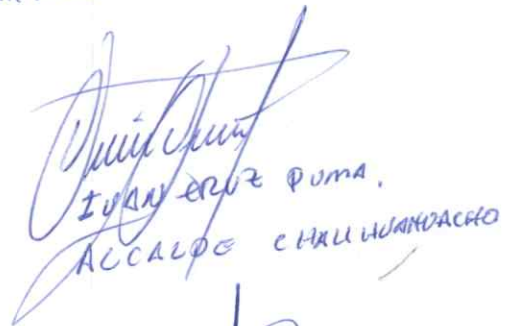 IVAN CRUZ PUMA.
ALCALDE CHALLHUAHUACHO